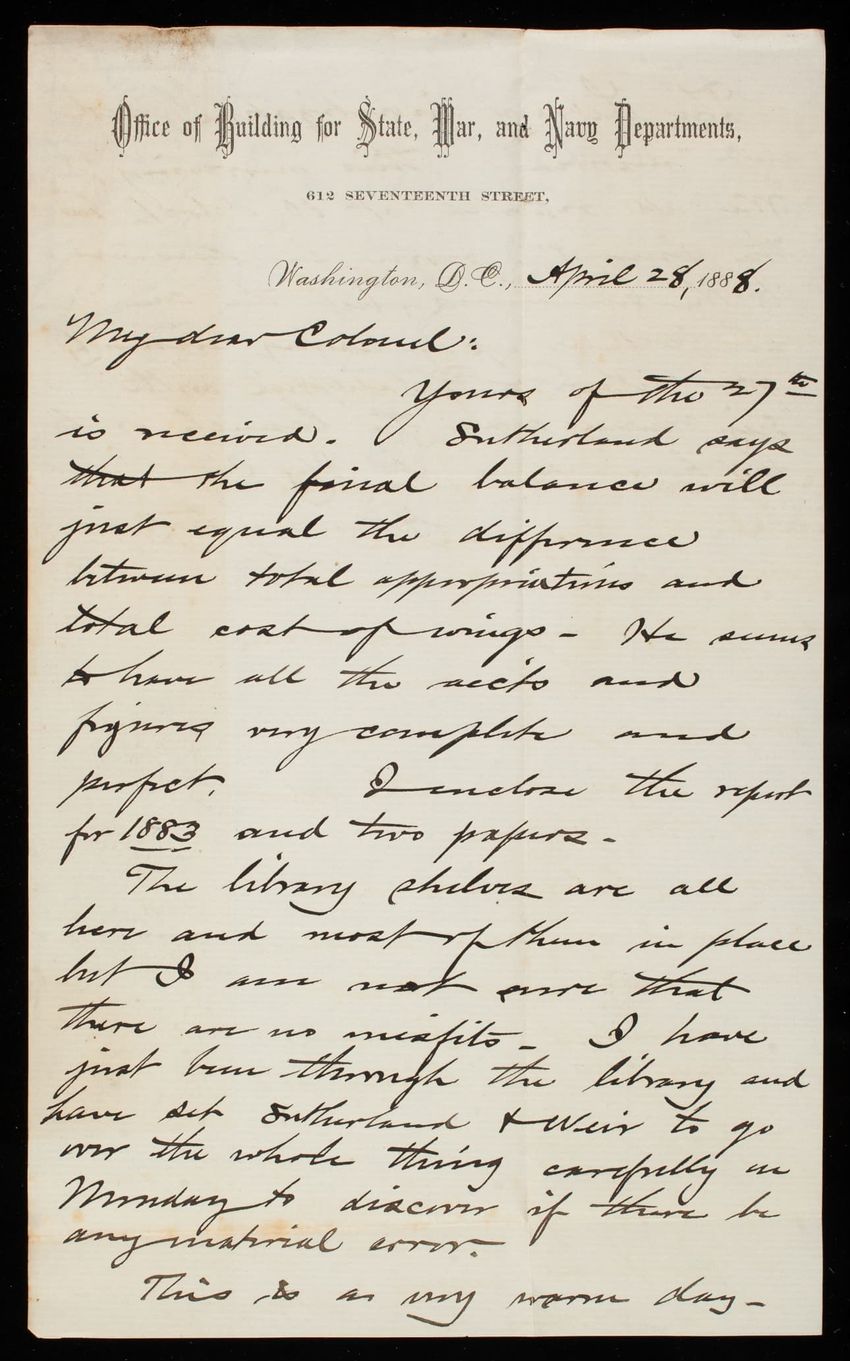 Office of Building for State, War, and Navy Departments,
612 SEVENTEENTH STREET,
Washington, D.C., April 28, 1888.
My dear Colonel:
Yours of the 27th
is received. Sutherland says
that the final balance will
just equal the difference
between total appropriations and
total cost of wings - He seems
to have all the accts and
figures very complete and
perfect. I enclose the report
for 1883 and two papers -
The library shelves are all
here and most of them in place
but I am not sure that
there are no misfits - I have
just been through the library and
have set Sutherland & Weir to go
over the whole thing carefully on
Monday to discover if there be
any material error.
This is a very warm day -